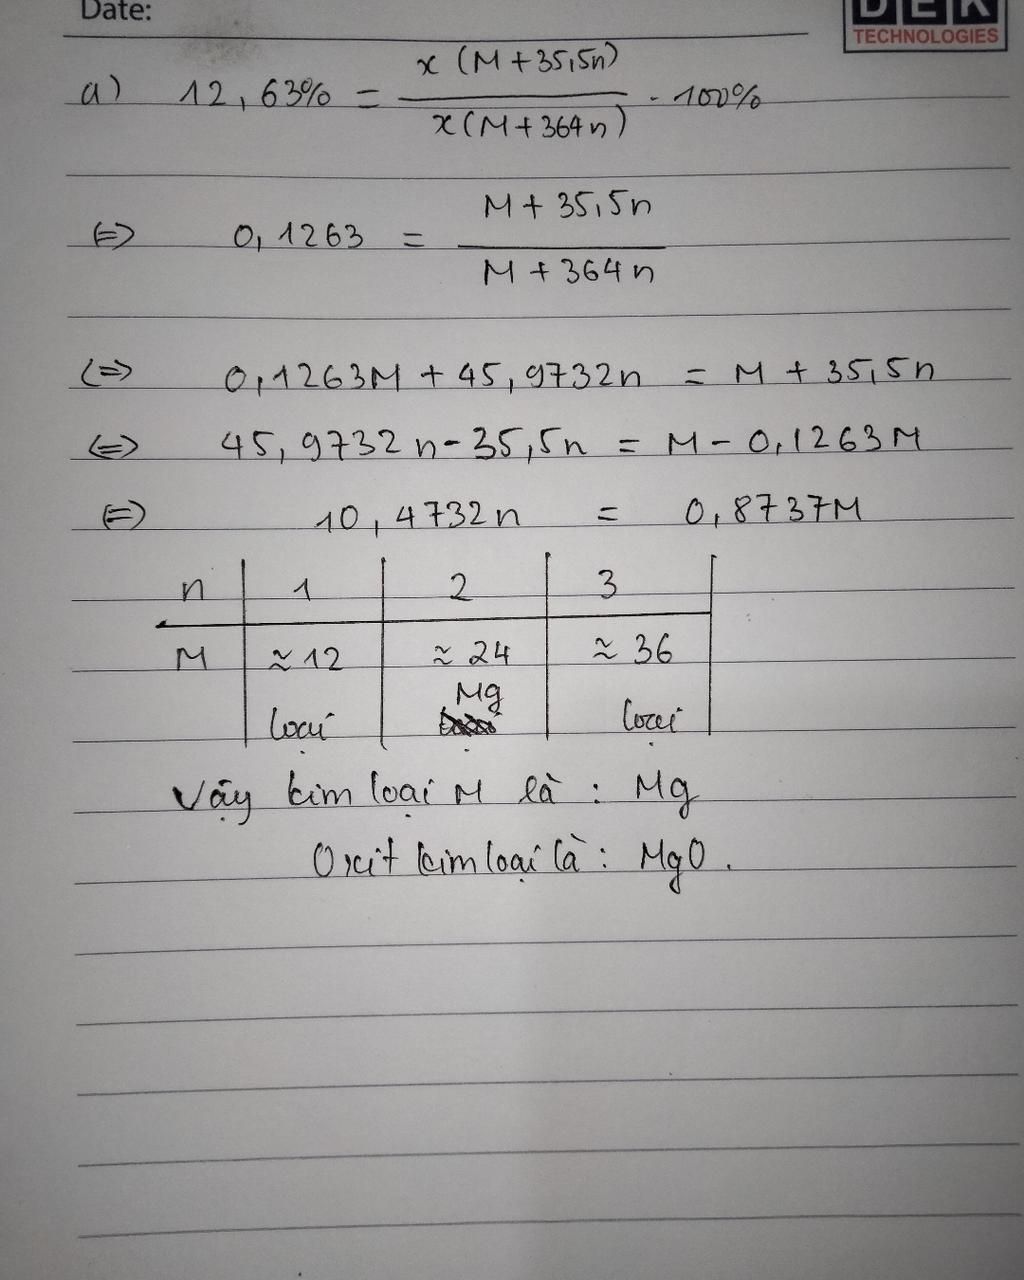 Date:
DEK
TECHNOLOGIES
a) 12,63% = x (M + 35,5n) / x (M + 364n) . 100%
<=> 0,1263 = M + 35,5n / M + 364n
<=> 0,1263M + 45,9732n = M + 35,5n
<=> 45,9732n - 35,5n = M - 0,1263M
<=> 10,4732n = 0,8737M
n | 1 | 2 | 3
M | ≈ 12 | ≈ 24 | ≈ 36
loại | Mg | loại
Vậy kim loại M là : Mg
Oxit kim loại là : MgO .